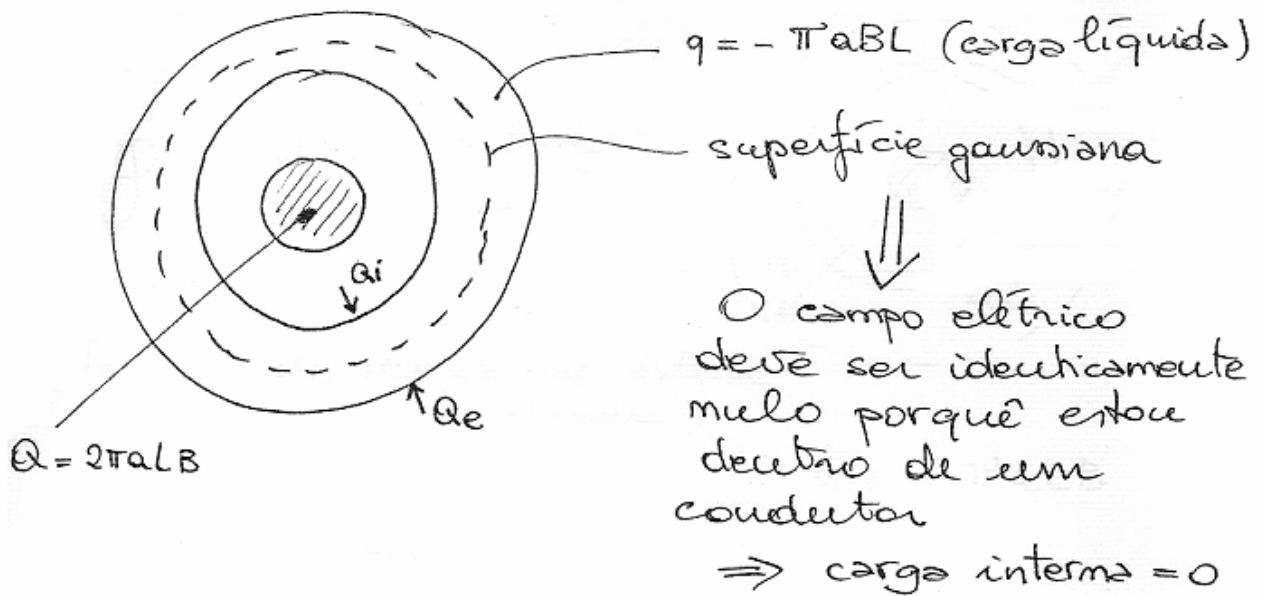 q = - πaBL (carga líquida)
superfície gaussiana
Qi
O campo elétrico
deve ser identicamente
nulo porquê estou
dentro de um
condutor
Qe
Q = 2πaLB
⇒ carga interna = 0